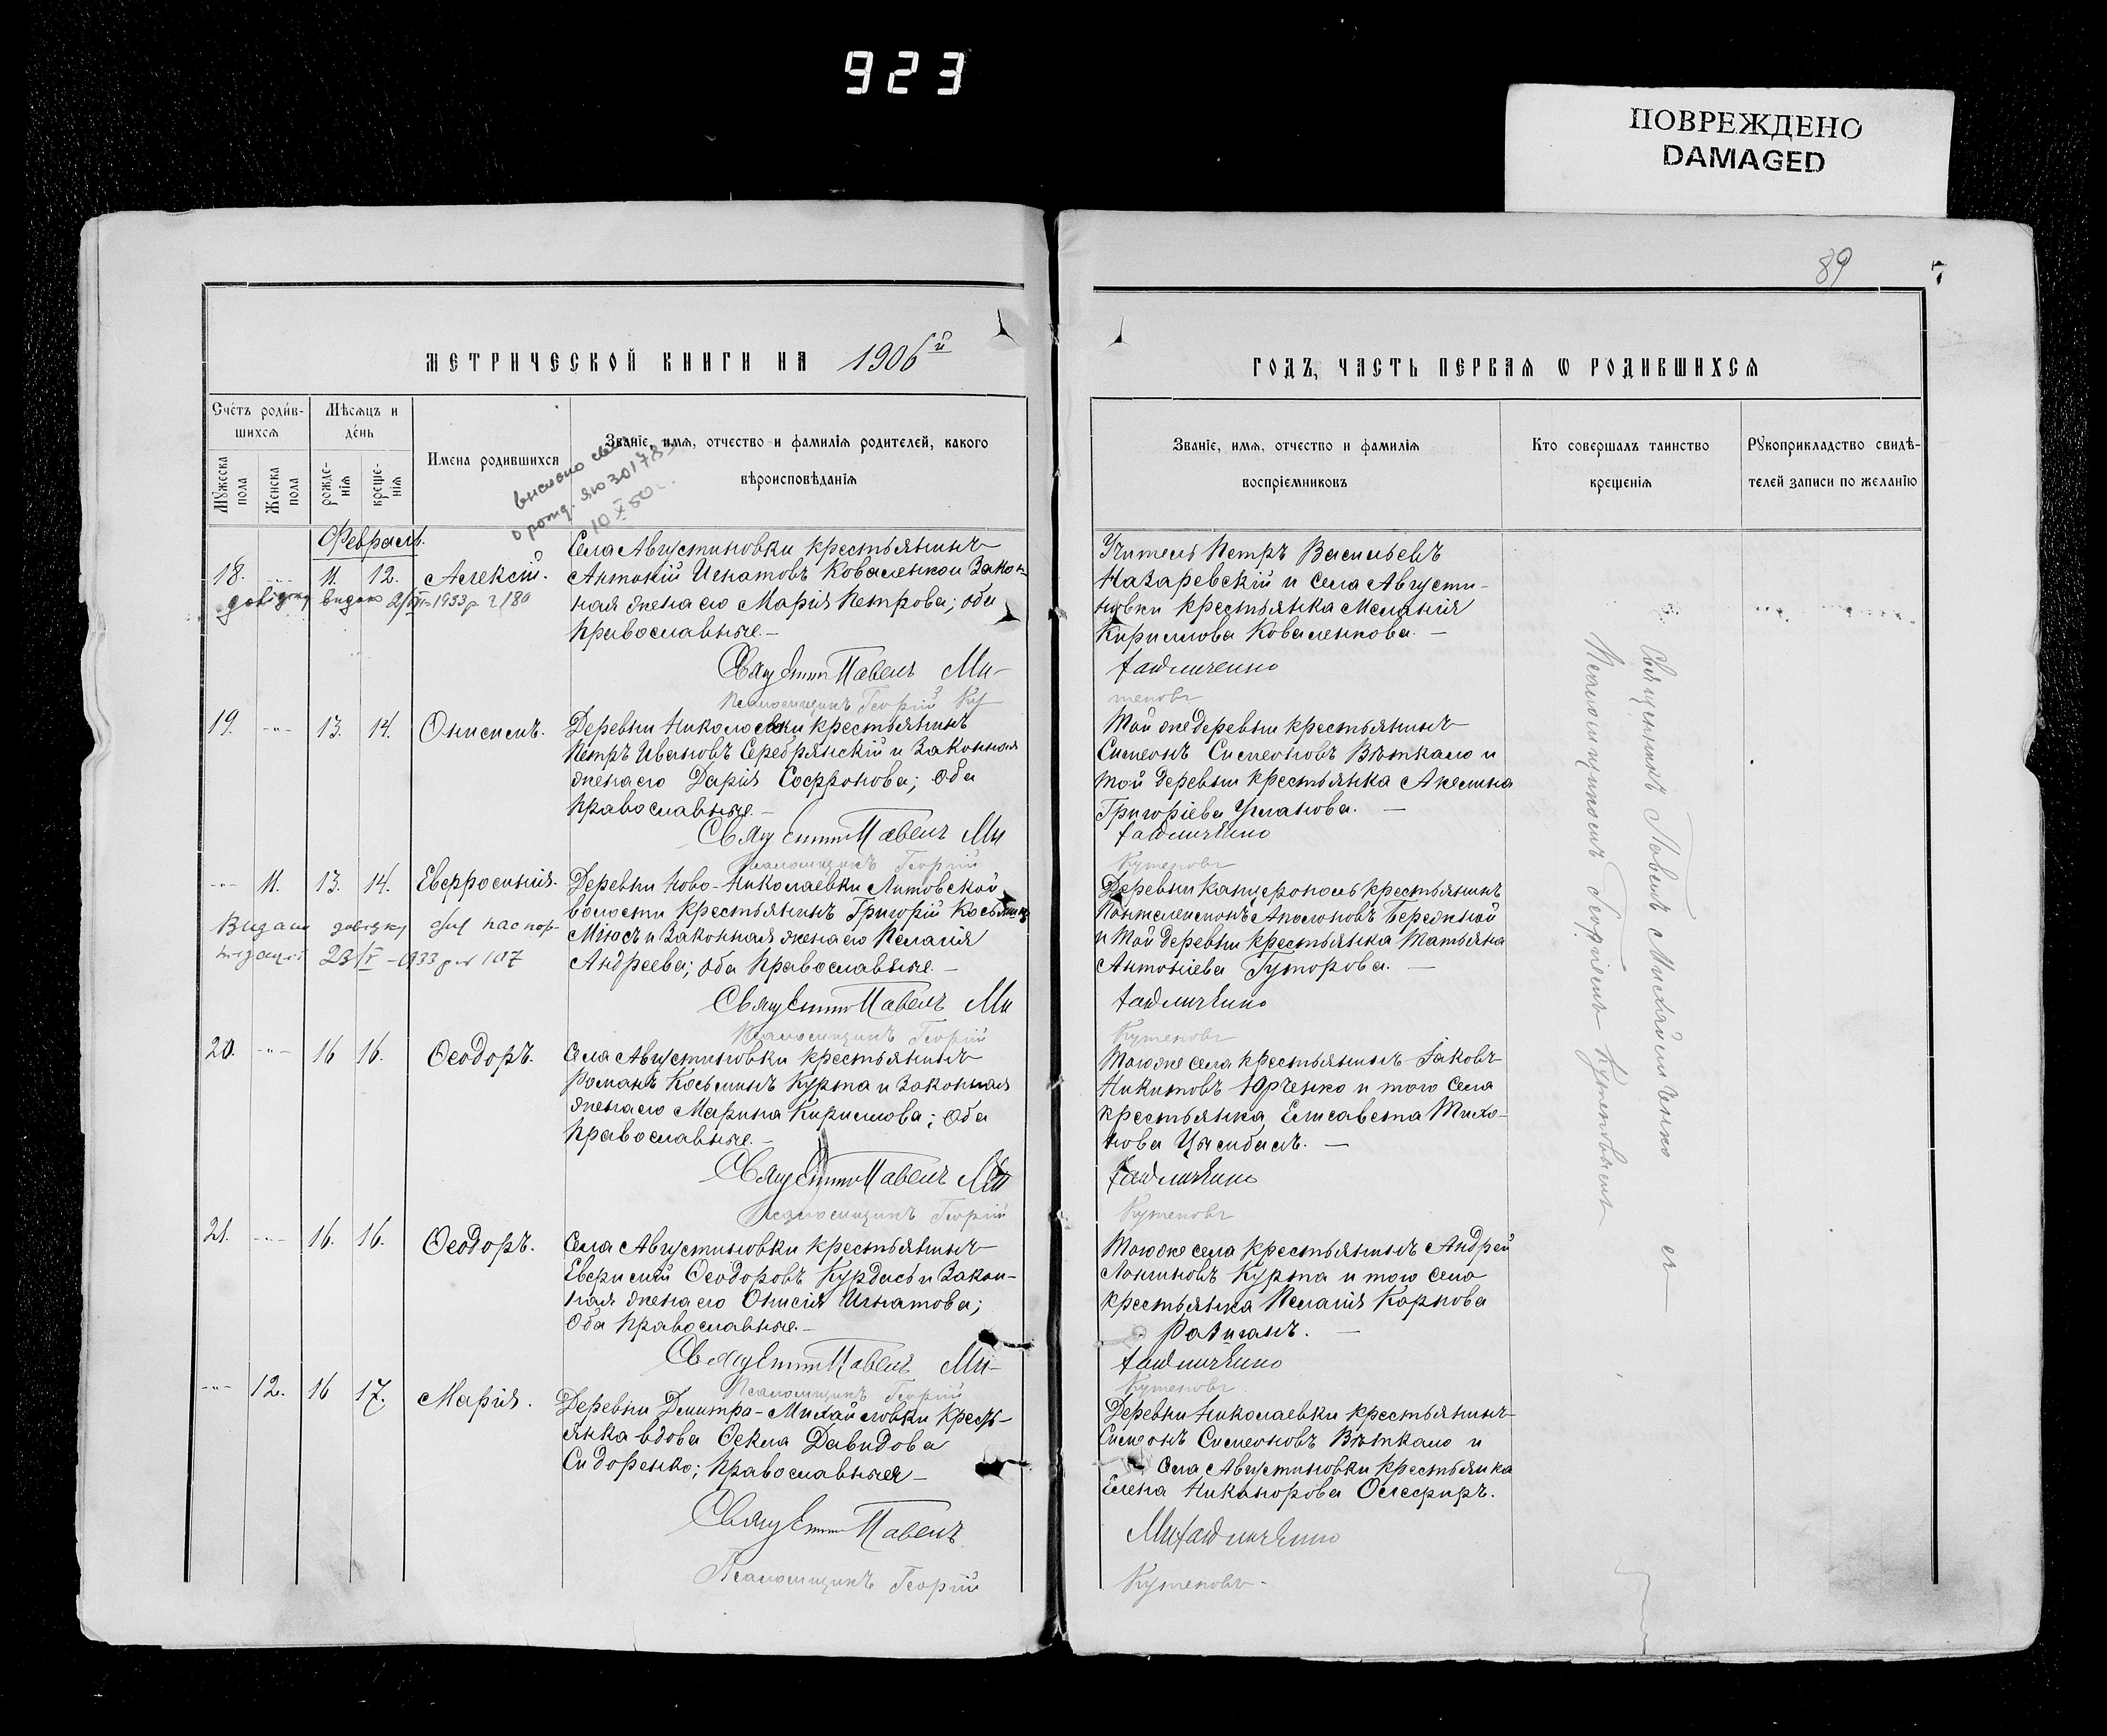 923
ПОВРЕЖДЕНО
DAMAGED
89
7
МЕТРИЧЕСКОЙ КНИГИ НА 1906й
Счетъ родив-
шихся
Мѣсяцъ и
день
Имена родившихся
Званіе, имя, отчество и фамилія родителей, какого
вѣроисповѣданія
Мужеска
пола
Женска
пола
рожде-
нія
креще-
нія
выслано
о рожд. ЯЮ 30178
10 X 50 г.
Февраль.
18. 11. 12. Алексій.
довідку видано 1933 р.
Села Августиновки крестьянинъ
Антоній Игнатовъ Коваленко и Закон-
ная жена его Марія Петрова; оба
православные. —
Священникъ Павелъ Ми-
Псаломщикъ Георгій Ку
19. 13. 14. Онисимъ.
Деревни Николаевки крестьянинъ
Петръ Ивановъ Серебрянскій и Законная
жена его Дарія Софронова; оба
православные. —
Священникъ Павелъ Ми
Псаломщикъ Георгій
11. 13. 14. Евфросинія.
Видано довідку для паспор-
тизації 23/V – 1933 р. № 107
Деревни Ново-Николаевки Литовской
волости крестьянинъ Григорій Косьминъ
Міюсъ и Законная жена его Пелагія
Андреева; оба православные. —
Священникъ Павелъ Ми
Псаломщикъ Георгій
20. 16 16. Ѳеодоръ.
Села Августиновки крестьянинъ
Романъ Косьминъ Курта и Законная
жена его Марина Кириллова; оба
православные. —
Священникъ Павелъ Ми
Псаломщикъ Георгій
21. 16. 16. Ѳеодоръ.
Села Августиновки крестьянинъ
Ѳеодоровъ Курдасъ и Закон-
ная жена его Онисія Игнатова;
Оба православные. —
Священникъ Павелъ Ми-
Псаломщикъ Георгій
12. 16 17. Марія.
Деревни Димитро-Михайловки Кресть-
янка вдова Ѳекла Давидова
Сидоренко; православная —
Священникъ Павелъ
Псаломщикъ Георгій
ГОДЪ, ЧАСТЬ ПЕРВАЯ Ѡ РОДИВШИХСЯ
Званіе, имя, отчество и фамилія
воспріемниковъ
Кто совершалъ таинство
крещенія
Рукоприкладство свидѣ-
телей записи по желанію
Учитель Петръ Васильевъ
Назаревскій и села Августи-
новки крестьянка Меланія
Кириллова Коваленкова. —
хайличенко
теповъ
Той же деревни крестьянинъ
Симеонъ Симеоновъ Вѣткало и
той деревни крестьянка Акелина
Григоріева Уманова. —
хайличенко
Кутеповъ
Деревни Катеринополь крестьянинъ
Пантелеимонъ Аполоновъ Бережной
и той деревни крестьянка Татьяна
Антоніева Гуторова. —
хайличенко
Кутеповъ
Того же села крестьянинъ Іаковъ
Никитовъ Юрченко и того села
крестьянка Елисавета Тихо-
нова Цымбалъ. —
хайличенко
Кутеповъ
Того же села крестьянинъ Андрей
Лонгиновъ Курта и того села
крестьянка Пелагія Карпова
хайличенко
Кутеповъ
Деревни Николаевки крестьянинъ
Симеонъ Симеоновъ Вѣткало и
Села Августиновки крестьянка
Елена Никанорова Олефиръ.
Михайличенко
Кутеповъ
Священникъ Павелъ Михайличенко съ
Псаломщикомъ Георгіемъ Кутеповымъ